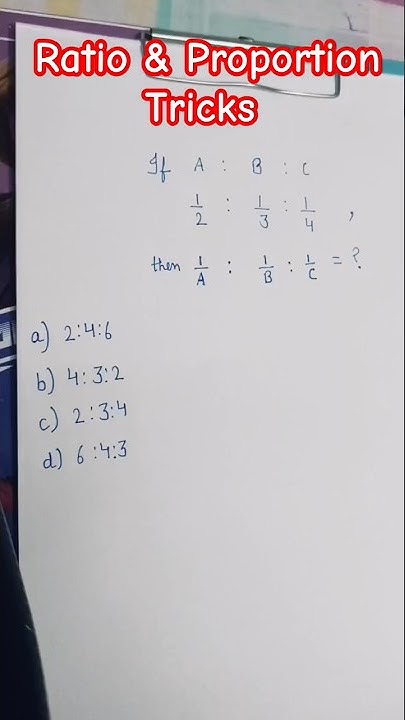 Ratio & Proportion
Tricks
If A : B : C
1/2 : 1/3 : 1/4 ,
then 1/A : 1/B : 1/C = ?
a) 2:4:6
b) 4:3:2
c) 2:3:4
d) 6:4:3